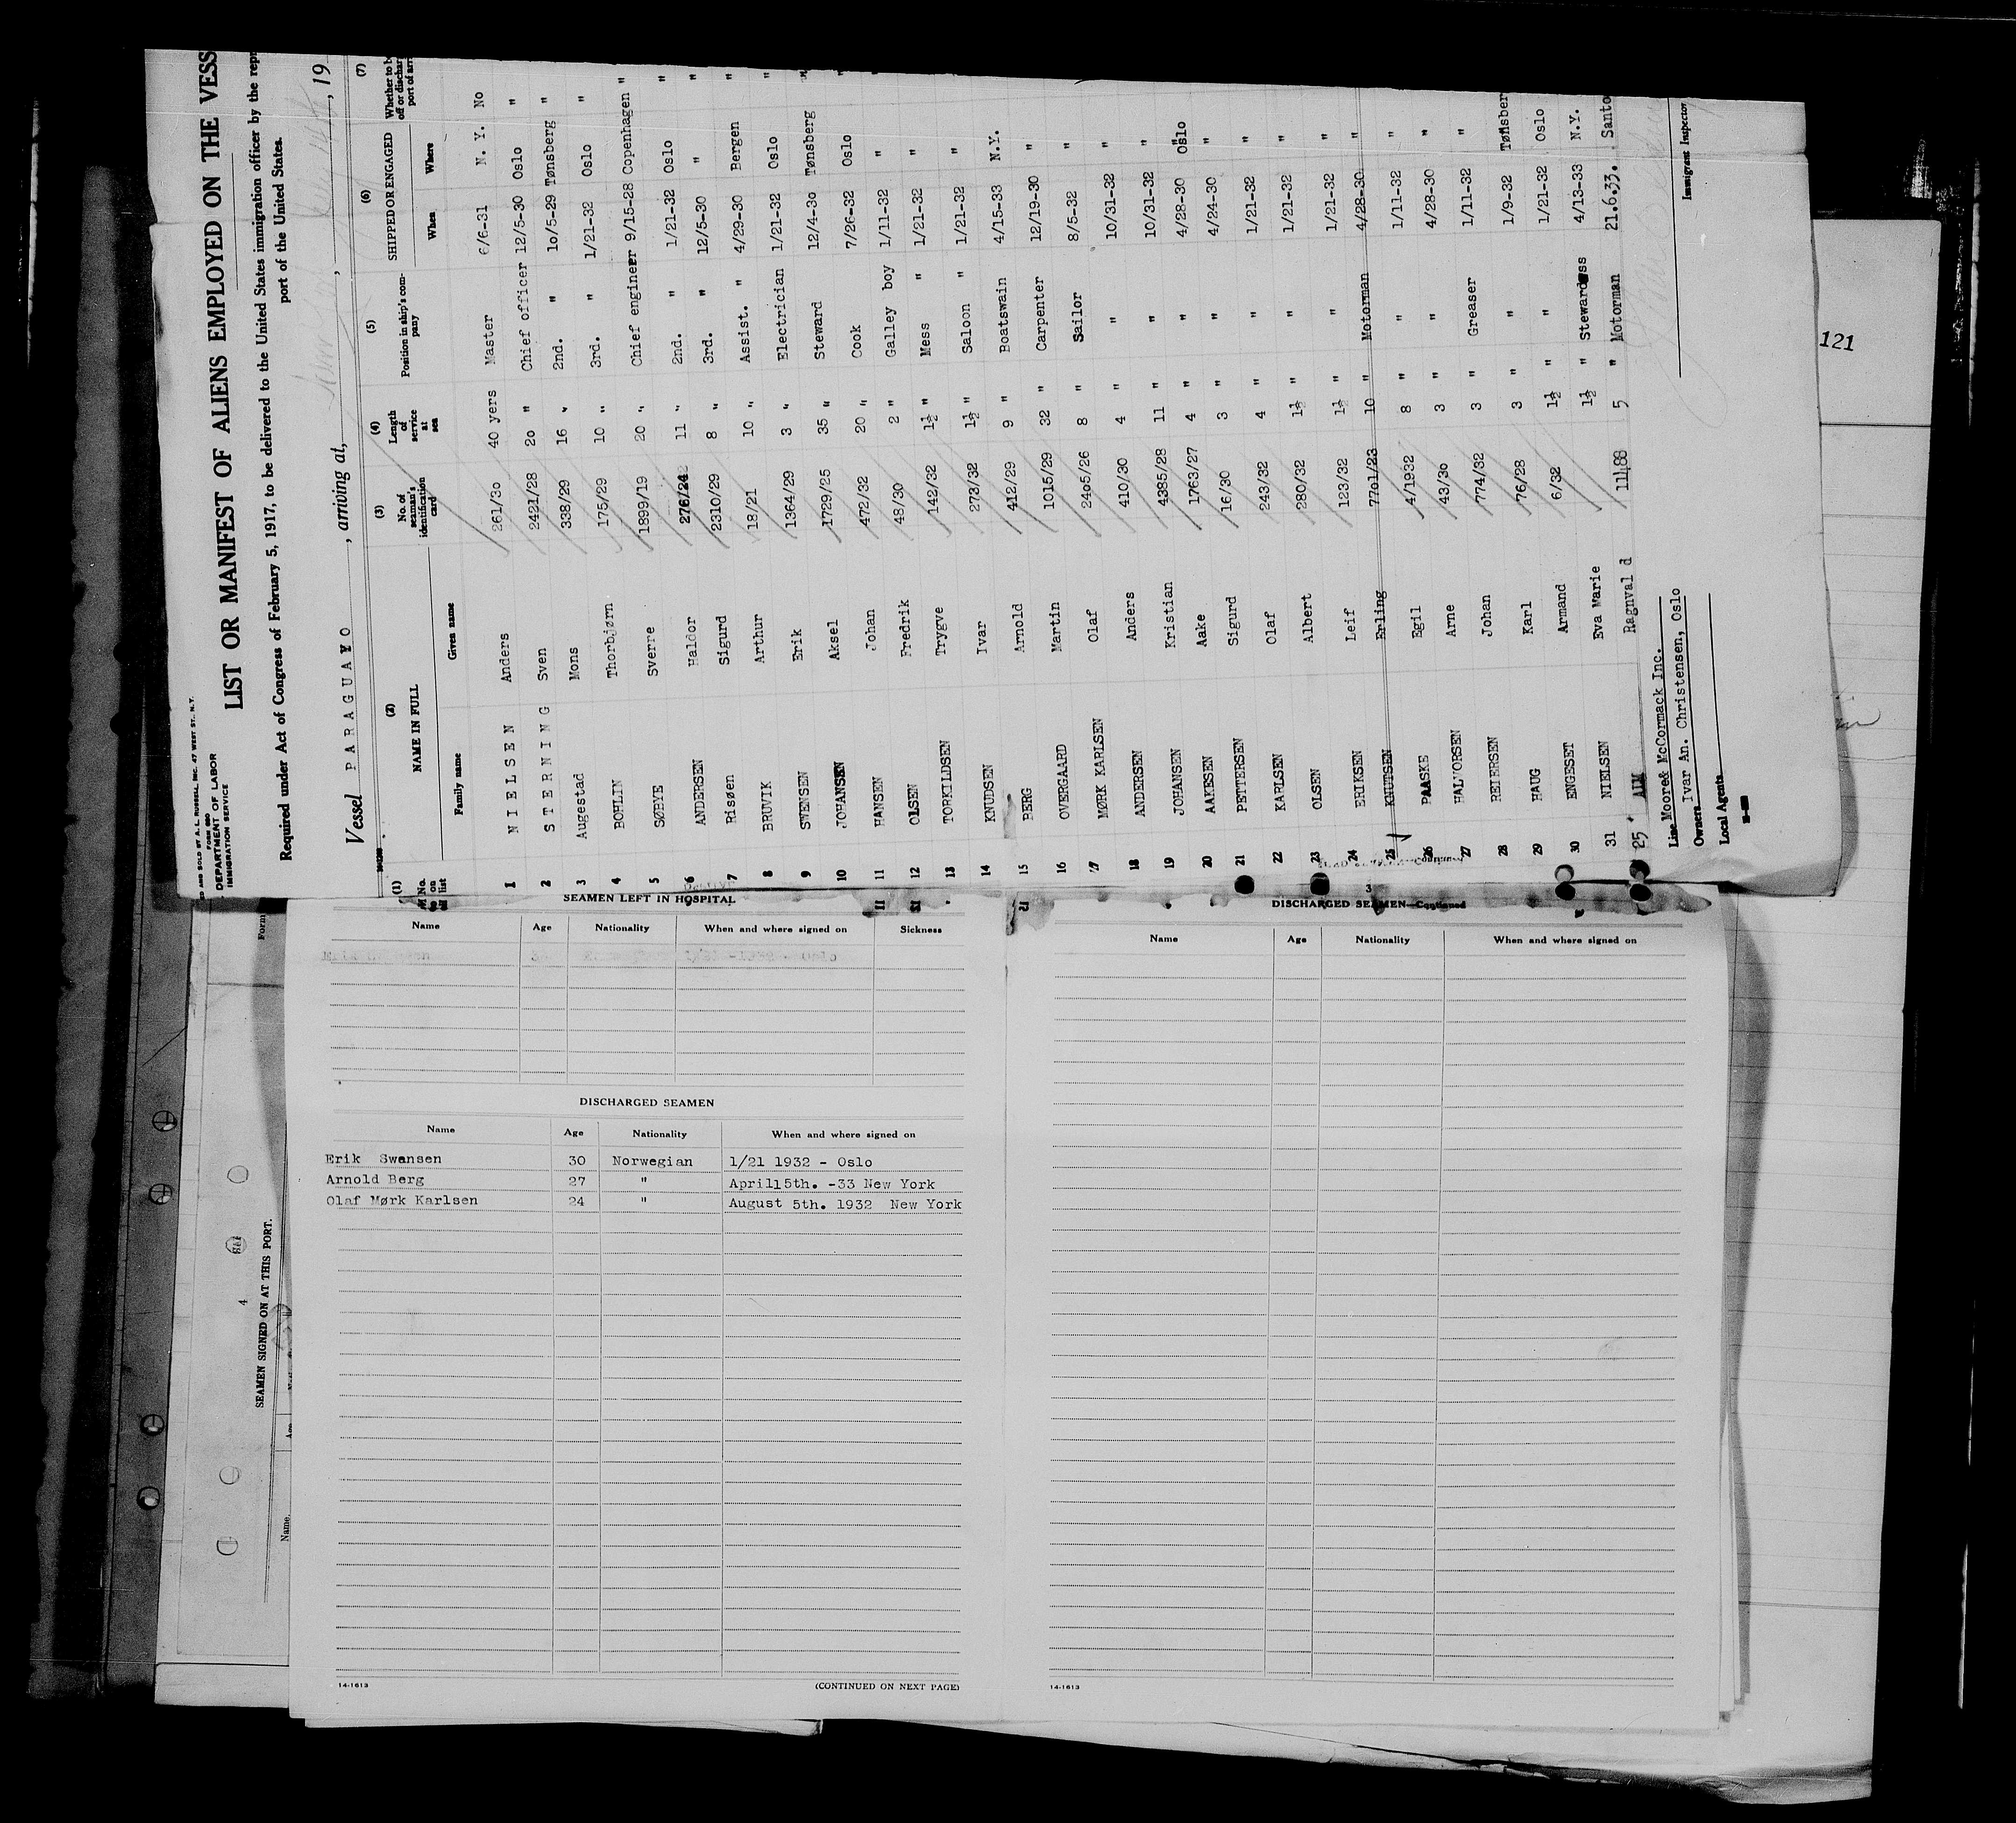 AND SOLD BY A. L. RUSSELL, INC. 47 WEST ST. N.Y.
FORM 680
DEPARTMENT OF LABOR
IMMIGRATION SERVICE
LIST OR MANIFEST OF ALIENS EMPLOYED ON THE VESS
Required under Act of Congress of February 5, 1917, to be delivered to the United States immigration officer by the repr
port of the United States.
Vessel PARAGUAYO, arriving at, , 19
(1) (2) (3) (4) (5) (6) (7)
No. on list NAME IN FULL No. of seaman's identification card Length of service at sea Position in ship's company SHIPPED OR ENGAGED Whether to b off or dischar port of arr
Family name Given name When Where
1 NIELSEN Anders 261/30 40 yers Master 6/6-31 N. Y. No
2 STERNING Sven 2421/28 20 " Chief officer 12/5-30 Oslo "
3 Augestad Mons 338/29 16 " 2nd. " 10/5-29 Tønsberg "
4 BOHLIN Thorbjørn 175/29 10 " 3rd. " 1/21-32 Oslo "
5 SØBYE Sverre 1899/19 20 " Chief engineer 9/15-28 Copenhagen "
6 ANDERSEN Haldor 276/24 11 " 2nd. " 1/21-32 Oslo "
7 Risøen Sigurd 2310/29 8 " 3rd. " 12/5-30 " "
8 BRUVIK Arthur 18/21 10 " Assist. " 4/29-30 Bergen "
9 SWENSEN Erik 1364/29 3 " Electrician 1/21-32 Oslo "
10 JOHANSEN Aksel 1729/25 35 " Steward 12/4-30 Tønsberg "
11 HANSEN Johan 472/32 20 " Cook 7/26-32 Oslo "
12 OLSEN Fredrik 48/30 2 " Galley boy 1/11-32 " "
13 TORKILDSEN Trygve 142/32 1½ " Mess " 1/21-32 "
14 KNUDSEN Ivar 273/32 1½ " Saloon " 1/21-32 "
15 BERG Arnold 412/29 9 " Boatswain 4/15-33 N.Y.
16 OVERGAARD Martin 1015/29 32 " Carpenter 12/19-30 "
17 MØRK KARLSEN Olaf 2405/26 8 " Sailor 8/5-32 "
18 ANDERSEN Anders 410/30 4 " " 10/31-32 "
19 JOHANSEN Kristian 4385/28 11 " " 10/31-32 "
20 AAKESEN Aake 1763/27 4 " " 4/28-30 Oslo
21 PETTERSEN Sigurd 16/30 3 " " 4/24-30 "
22 KARLSEN Olaf 243/32 4 " " 1/21-32 "
23 OLSEN Albert 280/32 1½ " " 1/21-32 "
24 ERIKSEN Leif 123/32 1½ " " 1/21-32 "
25 KNUTSEN Erling 7701/23 10 " Motorman 4/28-30 "
26 PAASKE Egil 4/1932 8 " " 1/11-32 "
27 HALVORSEN Arne 43/30 3 " " 4/28-30 "
28 REIERSEN Johan 774/32 3 " Greaser 1/11-32 "
29 HAUG Karl 76/28 3 " " 1/9-32 Tønsber
30 ENGESET Armand 6/32 1½ " " 1/21-32 Oslo
31 NIELSEN Eva Marie 1½ " Stewardess 4/13-33 N.Y.
25 ALM Ragnvald 11488 5 " Motorman 21.6.33. Santo
Line Moore& McCormack Inc.
Owners Ivar An. Christensen, Oslo
Local Agents
Immigrant Inspector
121
SEAMEN LEFT IN HOSPITAL
Name Age Nationality When and where signed on Sickness
DISCHARGED SEAMEN
Name Age Nationality When and where signed on
Erik Swensen 30 Norwegian 1/21 1932 - Oslo
Arnold Berg 27 " April15th. -33 New York
Olaf Mørk Karlsen 24 " August 5th. 1932 New York
14-1613 (CONTINUED ON NEXT PAGE)
3
DISCHARGED SEAMEN—Continued
Name Age Nationality When and where signed on
14-1613
4
SEAMEN SIGNED ON AT THIS PORT.
Name Age
Form